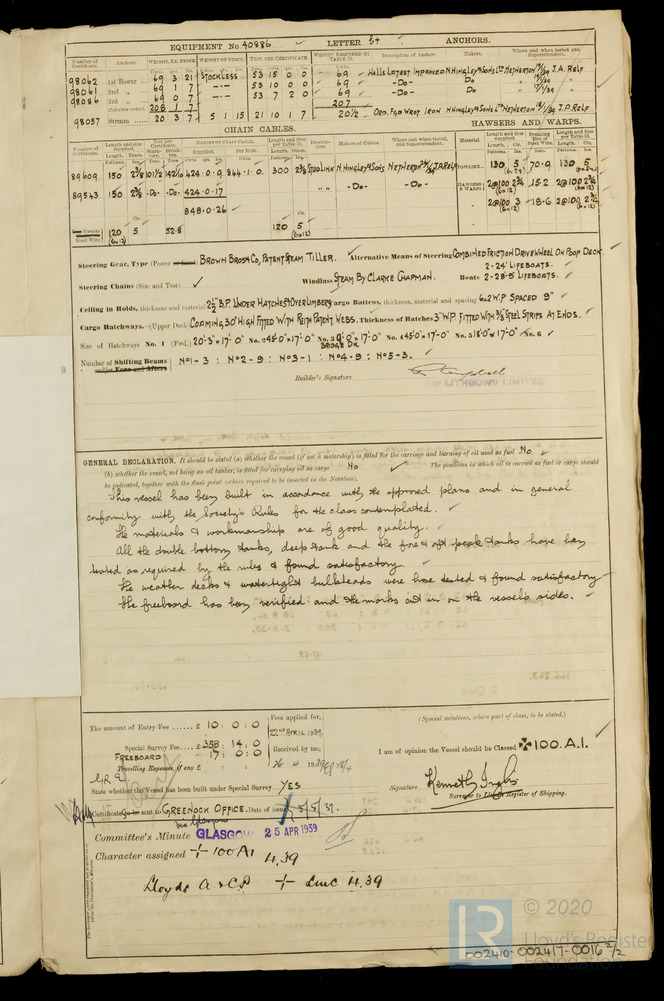 EQUIPMENT No. 40886 LETTER b+ ANCHORS.
Number of Certificate. Anchors. WEIGHT, EX. STOCK. WEIGHT OF STOCK. TEST, PER CERTIFICATE. WEIGHT REQUIRED BY TABLE 31. Description of Anchor. Makers. Where and when tested and Superintendent.
98062 1st Bower 69 3 21 STOCKLESS 53 15 0 0 69 Halls Latest Improved N. Hingley & Sons Ltd Netherton J.A. Relp
98061 2nd 69 1 7 -"- 53 10 0 0 69 -Do- Do
98086 3rd 69 0 7 -"- 53 7 2 0 69 -Do- Do
208 1 7 207
98037 Stream 20 3 7 5 1 15 21 10 1 7 20½ Ord. Fgd Wrot Iron N Hingley & Sons Ltd Netherton J.A. Relp
CHAIN CABLES. HAWSERS AND WARPS.
89609 150 2⅜ 101½ 142⁄10 424.0.9 844.1.0. 300 2⅜ Stud Link N. Hingley & Sons Netherton J.A. Relp Towline 130 5 70.9 130 5
89543 150 2⅜ -Do- -Do- 424.0.17 " " -Do- -Do- HAWSERS & WARPS 2@100 2¾ 15.2 2@100 2¾
848.0.26 2@100 3 18.6 2@100 2¾
Steel Wire 120 5 52.8 120 5
(6x12) (6x12)
Steering Gear, Type (Power) Brown Bros & Co, Patent Steam Tiller. Alternative Means of Steering Combined Friction Drive Wheel On Poop Deck.
Steering Chains (Size and Test) ✓ Windlass Steam By Clarke Chapman. Boats 2-24' Lifeboats.
2-28.5' Lifeboats.
Ceiling in Holds, thickness and material 2½" B.P. Under Hatches & Over Limbers Cargo Battens, thickness, material and spacing 6.2 W.P Spaced 9"
Cargo Hatchways.—(Upper Deck) Coaming, 30" High Fitted With Reith Patent Webs. Thickness of Hatches 3" W.P. Fitted With ⅜ Steel Strips At Ends.
Size of Hatchways No. 1 (Fwd.) 20'-3" x 17'-0" No. 2 45'0" x 17'-0" No. 3 9'-0" x 17'-0" No. 4 45'0" x 17'-0" No. 5 18'0" x 17'-0" No. 6 ✓
Bridge Dk.
Number of Shifting Beams No1-3 : No2-9 : No3-1 : No4-9 : No5-3. ✓
and/or Fore and Afters
Builder's Signature Campbell
For LITHGOWS LIMITED
GENERAL DECLARATION. It should be stated (a) whether the vessel (if not a motorship) is fitted for the carriage and burning of oil used as fuel No ✓
(b) whether the vessel, not being an oil tanker, is fitted for carrying oil as cargo No ✓ The positions in which oil is carried as fuel or cargo should
be indicated, together with the flash point (where required to be inserted in the Notation).
This vessel has been built in accordance with the approved plans and in general
conformity with the Society's Rules for the class contemplated.
The materials & workmanship are of good quality.
All the double bottom tanks, deep tank and the fore & aft peak tanks have been
tested as required by the rules & found satisfactory.
The weather decks & watertight bulkheads were hose tested & found satisfactory
The freeboard has been verified and the marks cut in on the vessel's sides.
The amount of Entry Fee ...... £ 10 : 0 : 0 Fees applied for, (Special notations, where part of class, to be stated.)
22nd Apr. 1939.
Special Survey Fee .... £ 358 : 14 : 0
FREEBOARD 17 : 0 : 0 Received by me, I am of opinion the Vessel should be Classed ✠ 100.A.1.
Travelling Expenses, if any £ : : 26 4 1939
State whether the Vessel has been built under Special Survey YES Signature Kenneth Inglis
Surveyor to Lloyd's Register of Shipping.
Certificate to be sent to GREENOCK OFFICE. Date of issue 5/5/39.
via Glasgow
Committee's Minute GLASGOW 25 APR 1939
Character assigned + 100 A1
4.39
Lloyds A & CP + LMC 4.39
© 2020
LR
Lloyd's Register
Foundation
002410-002417-0016 2/2